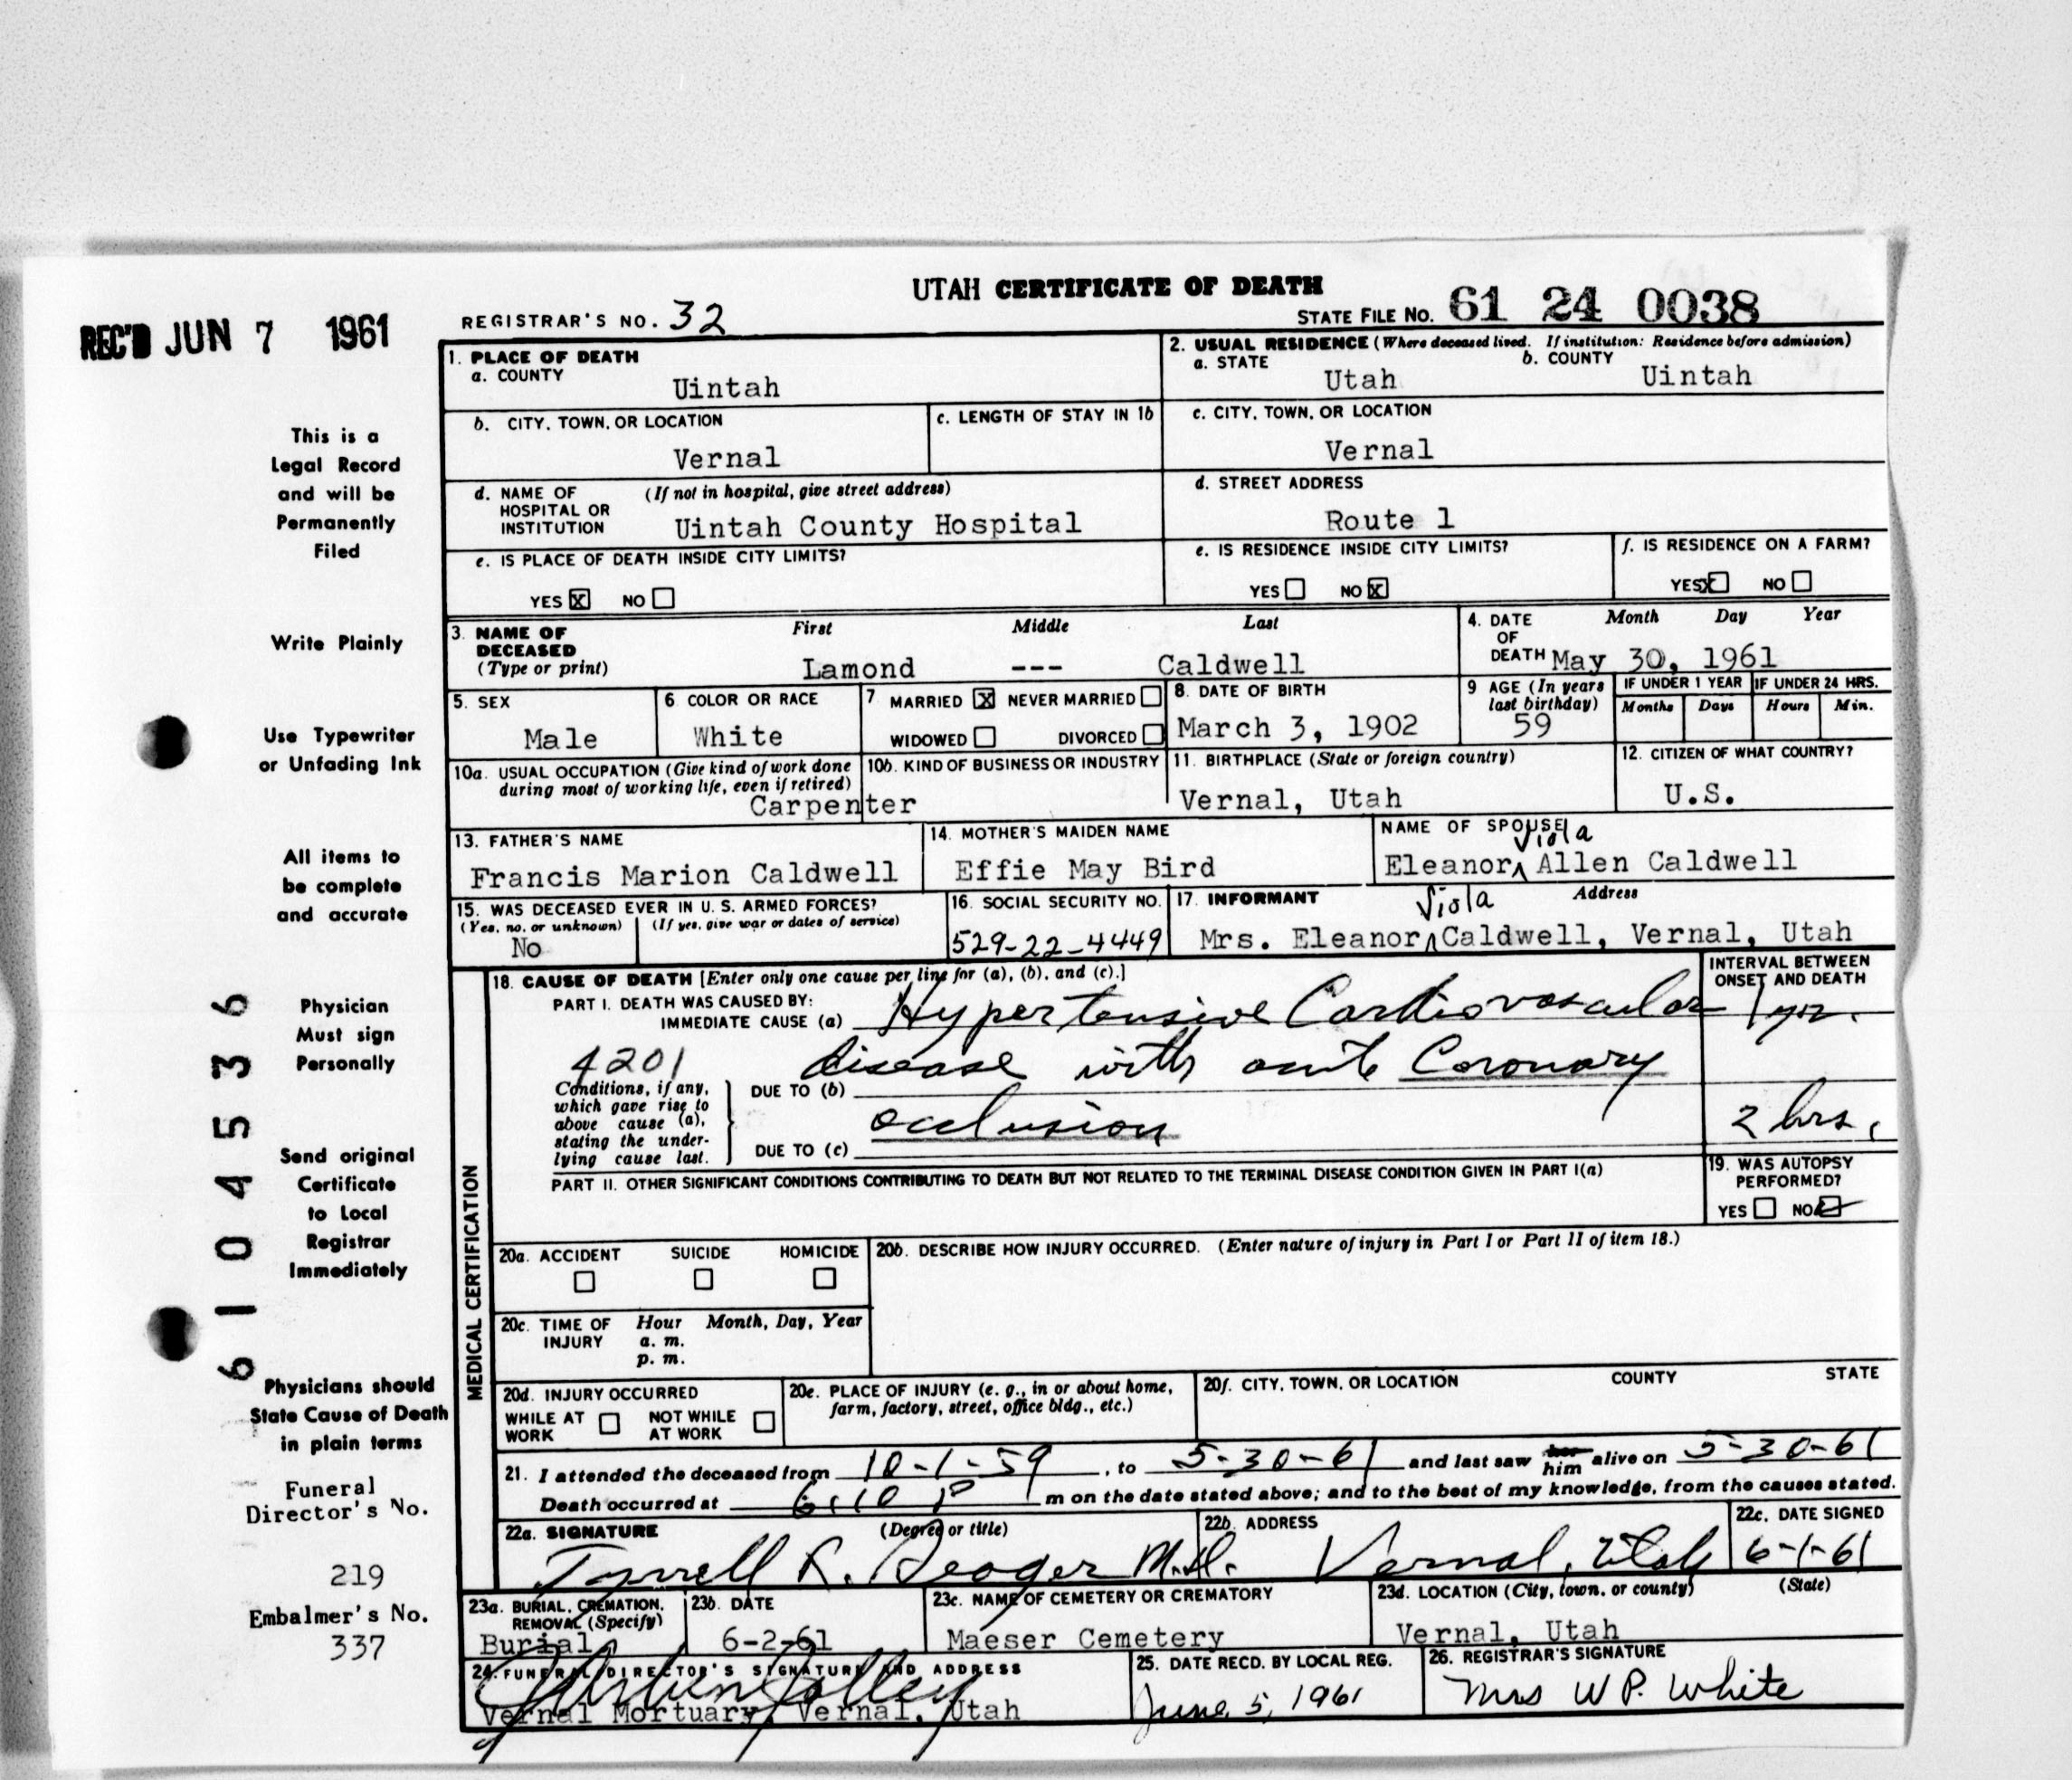 UTAH CERTIFICATE OF DEATH
REC'D JUN 7 1961
REGISTRAR'S NO. 32
STATE FILE NO. 61 24 0038
This is a
Legal Record
and will be
Permanently
Filed
Write Plainly
Use Typewriter
or Unfading Ink
All items to
be complete
and accurate
Physician
Must sign
Personally
Send original
Certificate
to Local
Registrar
Immediately
Physicians should
State Cause of Death
in plain terms
Funeral
Director's No.
219
Embalmer's No.
337
61045536
1. PLACE OF DEATH
a. COUNTY
Uintah
2. USUAL RESIDENCE (Where deceased lived. If institution: Residence before admission)
a. STATE
Utah
b. COUNTY
Uintah
b. CITY, TOWN, OR LOCATION
Vernal
c. LENGTH OF STAY IN 1b
c. CITY, TOWN, OR LOCATION
Vernal
d. NAME OF (If not in hospital, give street address)
HOSPITAL OR
INSTITUTION
Uintah County Hospital
d. STREET ADDRESS
Route 1
e. IS PLACE OF DEATH INSIDE CITY LIMITS?
YES X NO
e. IS RESIDENCE INSIDE CITY LIMITS?
YES NO X
f. IS RESIDENCE ON A FARM?
YES X NO
3. NAME OF
DECEASED
(Type or print)
First Middle Last
Lamond --- Caldwell
4. DATE
OF
DEATH
Month Day Year
May 30, 1961
5. SEX
Male
6. COLOR OR RACE
White
7 MARRIED X NEVER MARRIED
WIDOWED DIVORCED
8. DATE OF BIRTH
March 3, 1902
9 AGE (In years
last birthday)
59
IF UNDER 1 YEAR
Months Days
IF UNDER 24 HRS.
Hours Min.
10a. USUAL OCCUPATION (Give kind of work done
during most of working life, even if retired)
Carpenter
10b. KIND OF BUSINESS OR INDUSTRY
11. BIRTHPLACE (State or foreign country)
Vernal, Utah
12. CITIZEN OF WHAT COUNTRY?
U.S.
13. FATHER'S NAME
Francis Marion Caldwell
14. MOTHER'S MAIDEN NAME
Effie May Bird
NAME OF SPOUSE
Viola
Eleanor Allen Caldwell
15. WAS DECEASED EVER IN U. S. ARMED FORCES?
(Yes, no, or unknown) (If yes, give war or dates of service)
No
16. SOCIAL SECURITY NO.
529-22-4449
17. INFORMANT Address
Viola
Mrs. Eleanor Caldwell, Vernal, Utah
MEDICAL CERTIFICATION
18. CAUSE OF DEATH [Enter only one cause per line for (a), (b), and (c).]
INTERVAL BETWEEN
ONSET AND DEATH
PART I. DEATH WAS CAUSED BY:
IMMEDIATE CAUSE (a) Hypertensive Cardiovascular 1 yr.
4201 disease with acute Coronary
Conditions, if any,
which gave rise to
above cause (a),
stating the under-
lying cause last.
DUE TO (b)
occlusion 2 hrs.
DUE TO (c)
PART II. OTHER SIGNIFICANT CONDITIONS CONTRIBUTING TO DEATH BUT NOT RELATED TO THE TERMINAL DISEASE CONDITION GIVEN IN PART I(a)
19. WAS AUTOPSY
PERFORMED?
YES NO
20a. ACCIDENT SUICIDE HOMICIDE
20b. DESCRIBE HOW INJURY OCCURRED. (Enter nature of injury in Part I or Part II of item 18.)
20c. TIME OF Hour Month, Day, Year
INJURY a. m.
p. m.
20d. INJURY OCCURRED
WHILE AT NOT WHILE
WORK AT WORK
20e. PLACE OF INJURY (e. g., in or about home,
farm, factory, street, office bldg., etc.)
20f. CITY, TOWN, OR LOCATION COUNTY STATE
21. I attended the deceased from 10-1-59, to 5-30-61 and last saw her him alive on 5-30-61
Death occurred at 6:10 P m on the date stated above; and to the best of my knowledge, from the causes stated.
22a. SIGNATURE (Degree or title)
Tyrrell R. Seager M.D.
22b. ADDRESS
Vernal, Utah
22c. DATE SIGNED
6-1-61
23a. BURIAL, CREMATION,
REMOVAL (Specify)
Burial
23b. DATE
6-2-61
23c. NAME OF CEMETERY OR CREMATORY
Maeser Cemetery
23d. LOCATION (City, town, or county) (State)
Vernal, Utah
24. FUNERAL DIRECTOR'S SIGNATURE AND ADDRESS
Vernal Mortuary, Vernal, Utah
25. DATE RECD. BY LOCAL REG.
June 5, 1961
26. REGISTRAR'S SIGNATURE
Mrs W P. White